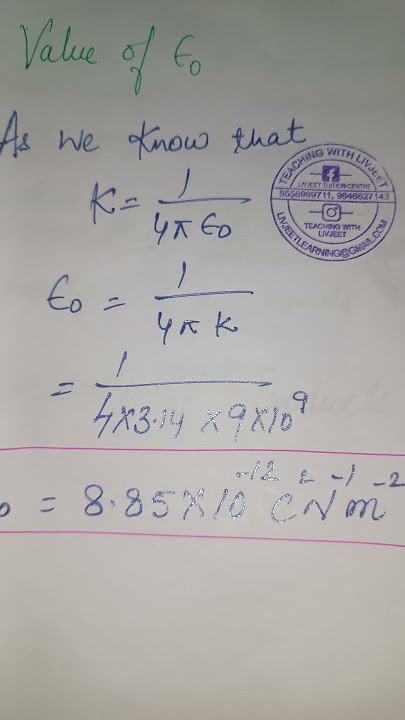 Value of ε₀
As we know that
K = 1 / 4π ε₀
ε₀ = 1 / 4π K
= 1 / 4×3.14 ×9×10⁹
₀ = 8.85×10⁻¹² C² N⁻¹ m⁻²
TEACHING WITH LIVJEET
LIVJEET TUITION CENTRE
8556999711, 9646627143
TEACHING WITH
LIVJEET
LIVJEETLEARNING@GMAIL.COM